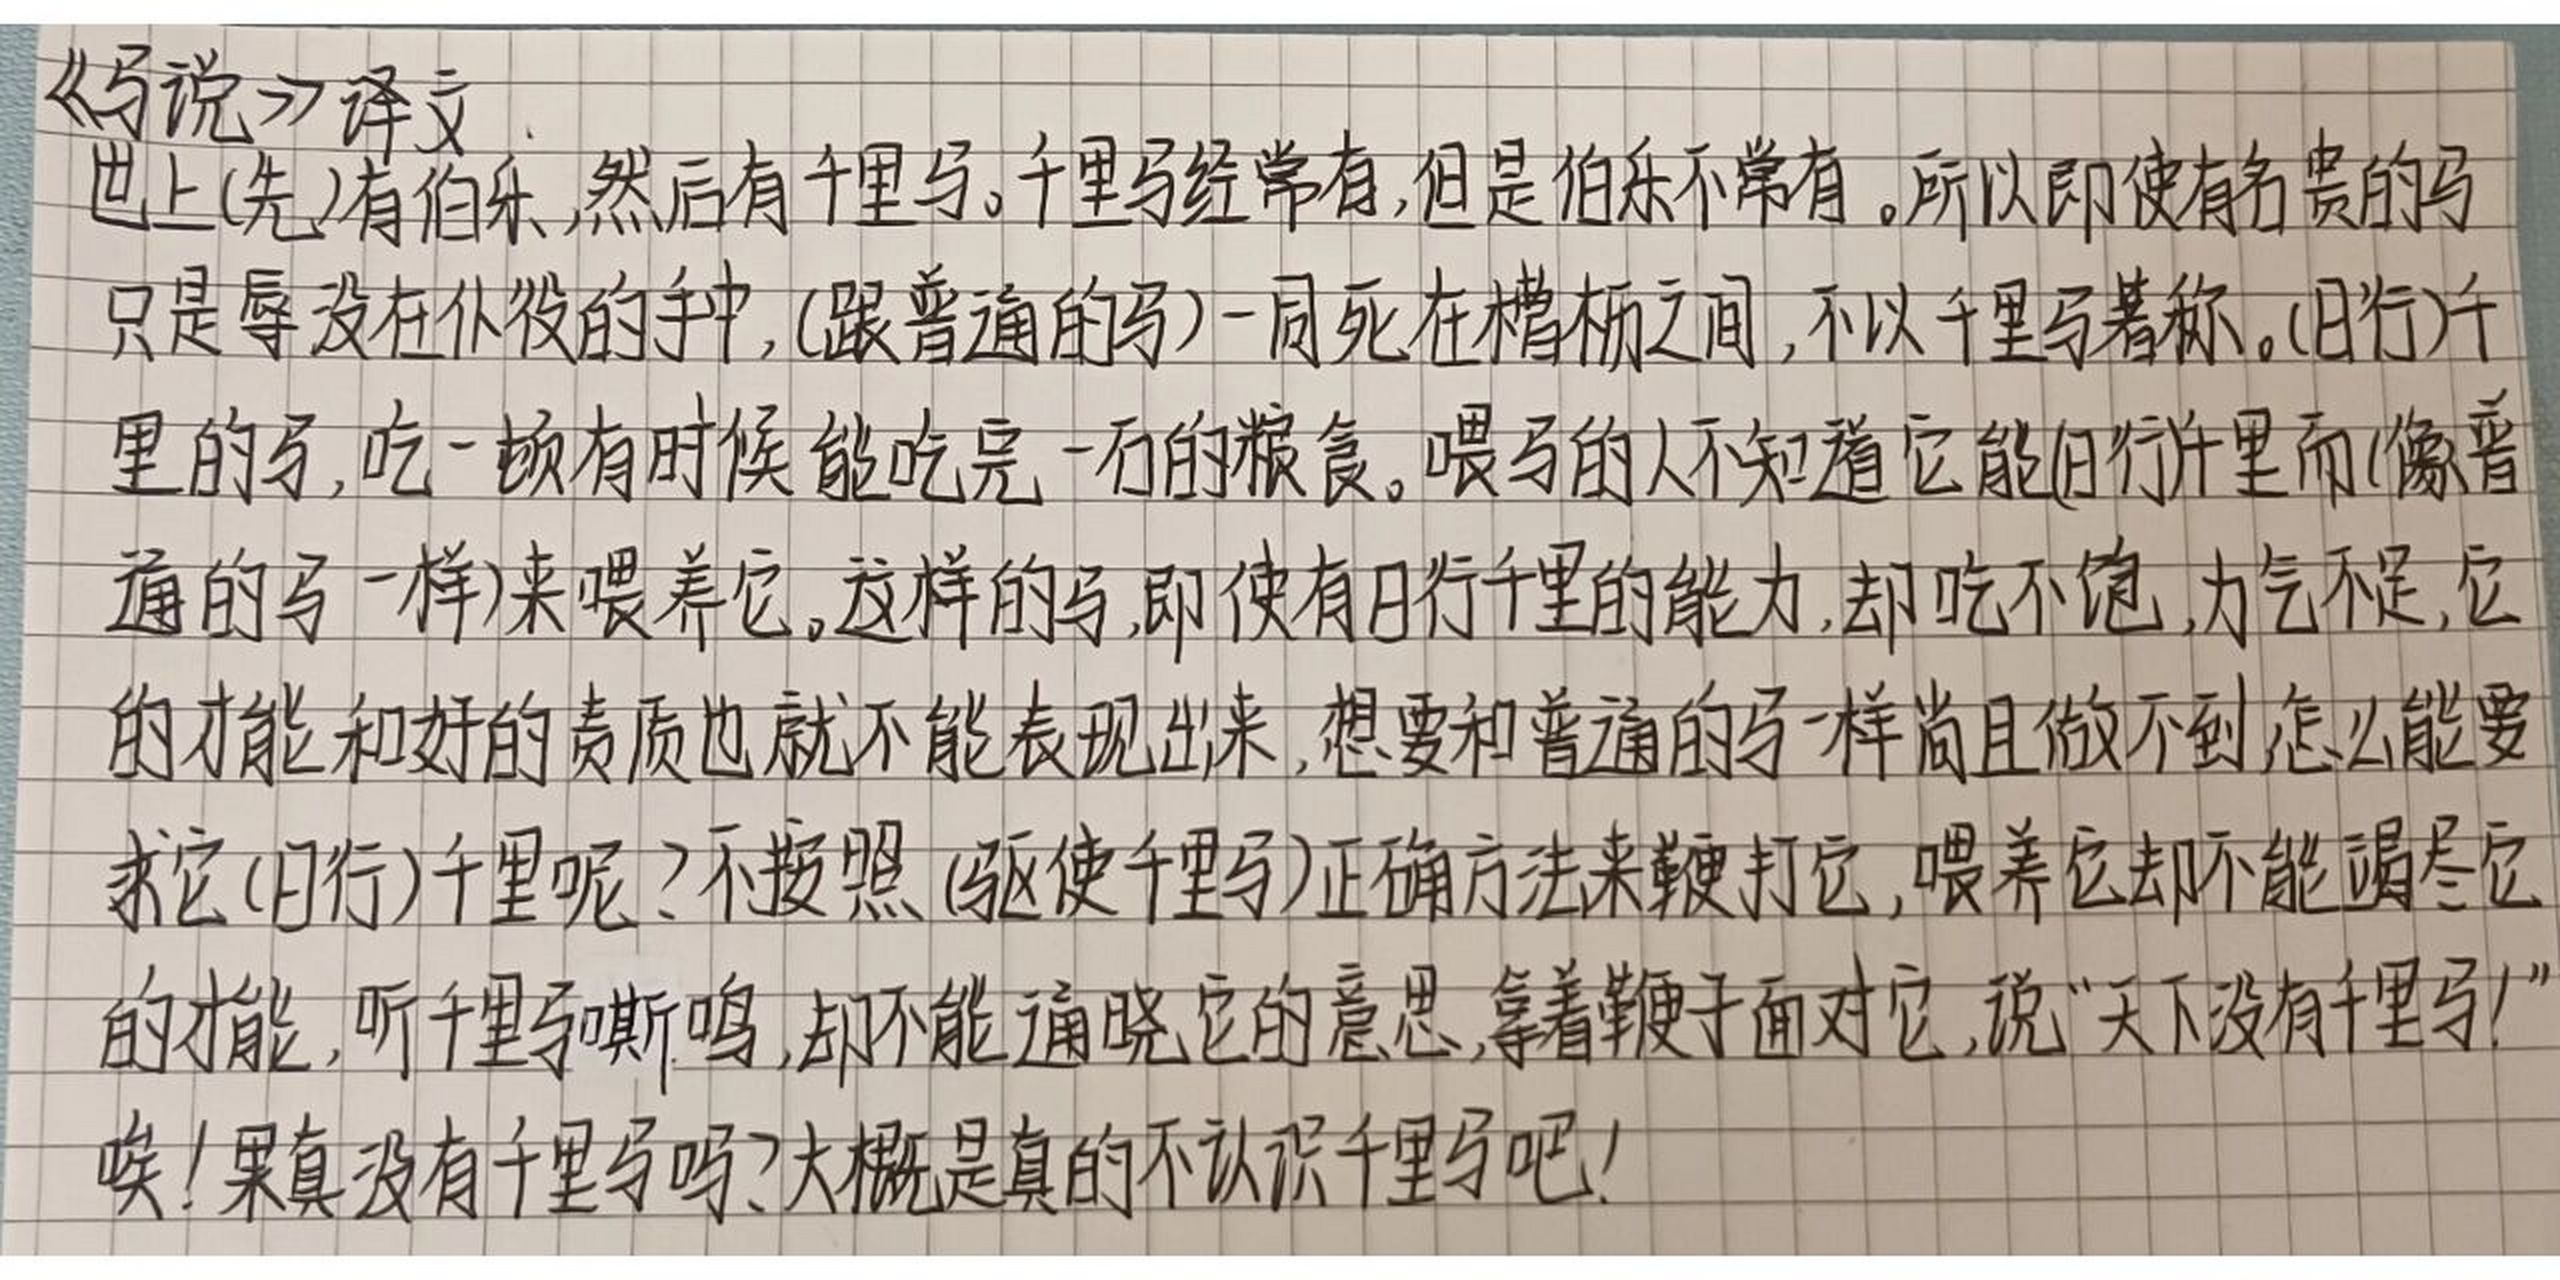 《马说》译文
世上(先)有伯乐,然后有千里马。千里马经常有,但是伯乐不常有。所以即使有名贵的马
只是辱没在仆役的手中,(跟普通的马)一同死在槽枥之间,不以千里马著称。(日行)千
里的马,吃一顿有时候能吃完一石的粮食。喂马的人不知道它能(日行)千里而(像普
通的马一样)来喂养它。这样的马,即使有日行千里的能力,却吃不饱,力气不足,它
的才能和好的责质也就不能表现出来,想要和普通的马一样尚且做不到,怎么能要
求它(日行)千里呢?不按照(驱使千里马)正确方法来鞭打它,喂养它却不能竭尽它
的才能,听千里马嘶鸣,却不能通晓它的意思,拿着鞭子面对它,说“天下没有千里马!”
唉!果真没有千里马吗?大概是真的不认识千里马吧!